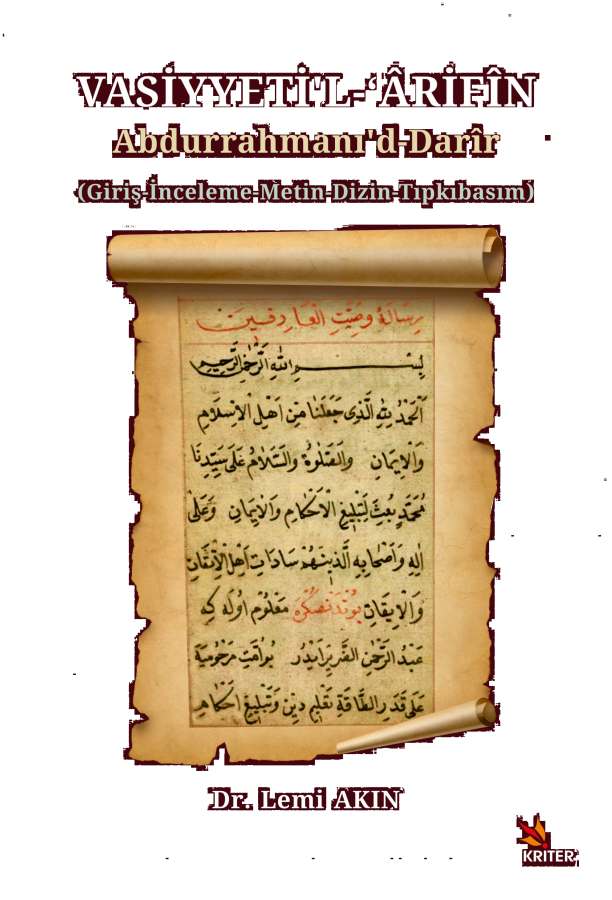 VASİYYETİ'L-‘ÂRİFÎN
Abdurrahmanı'd-Darîr
(Giriş-İnceleme-Metin-Dizin-Tıpkıbasım)
رِسَالَهُ وَصِيَّتِ الْعَارِفِينَ
بِسْمِ اللّٰهِ الرَّحْمٰنِ الرَّحِيمِ
اَلْحَمْدُ لِلّٰهِ الَّذِى جَعَلَنَا مِنْ اَهْلِ الْاِسْلَامِ
وَالْاِيمَانِ وَالصَّلٰوةُ وَالسَّلَامُ عَلَى سَيِّدِنَا
مُحَمَّدٍ بُعِثَ لِتَبْلِيغِ الْاَحْكَامِ وَالْاِيمَانِ وَعَلٰى
اٰلِهِ وَاَصْحَابِهِ الَّذِينَ هُمْ سَادَاتِ اَهْلِ الْاِتْقَانِ
وَالْاِيقَانِ بُوندَنصُكْرَه مَعْلُوم اُولَه كِه
عَبْدُ الرَّحْمٰنِ الضَّرِيرُ اَيْدُر بُو اُمَّتِ مَرْحُومَيَه
عَلَى قَدَرِ الطَّاقَةِ تَعْلِيمِ دِين وَتَبْلِيغِ اَحْكَامِ
Dr. Lemi AKIN
KRİTER